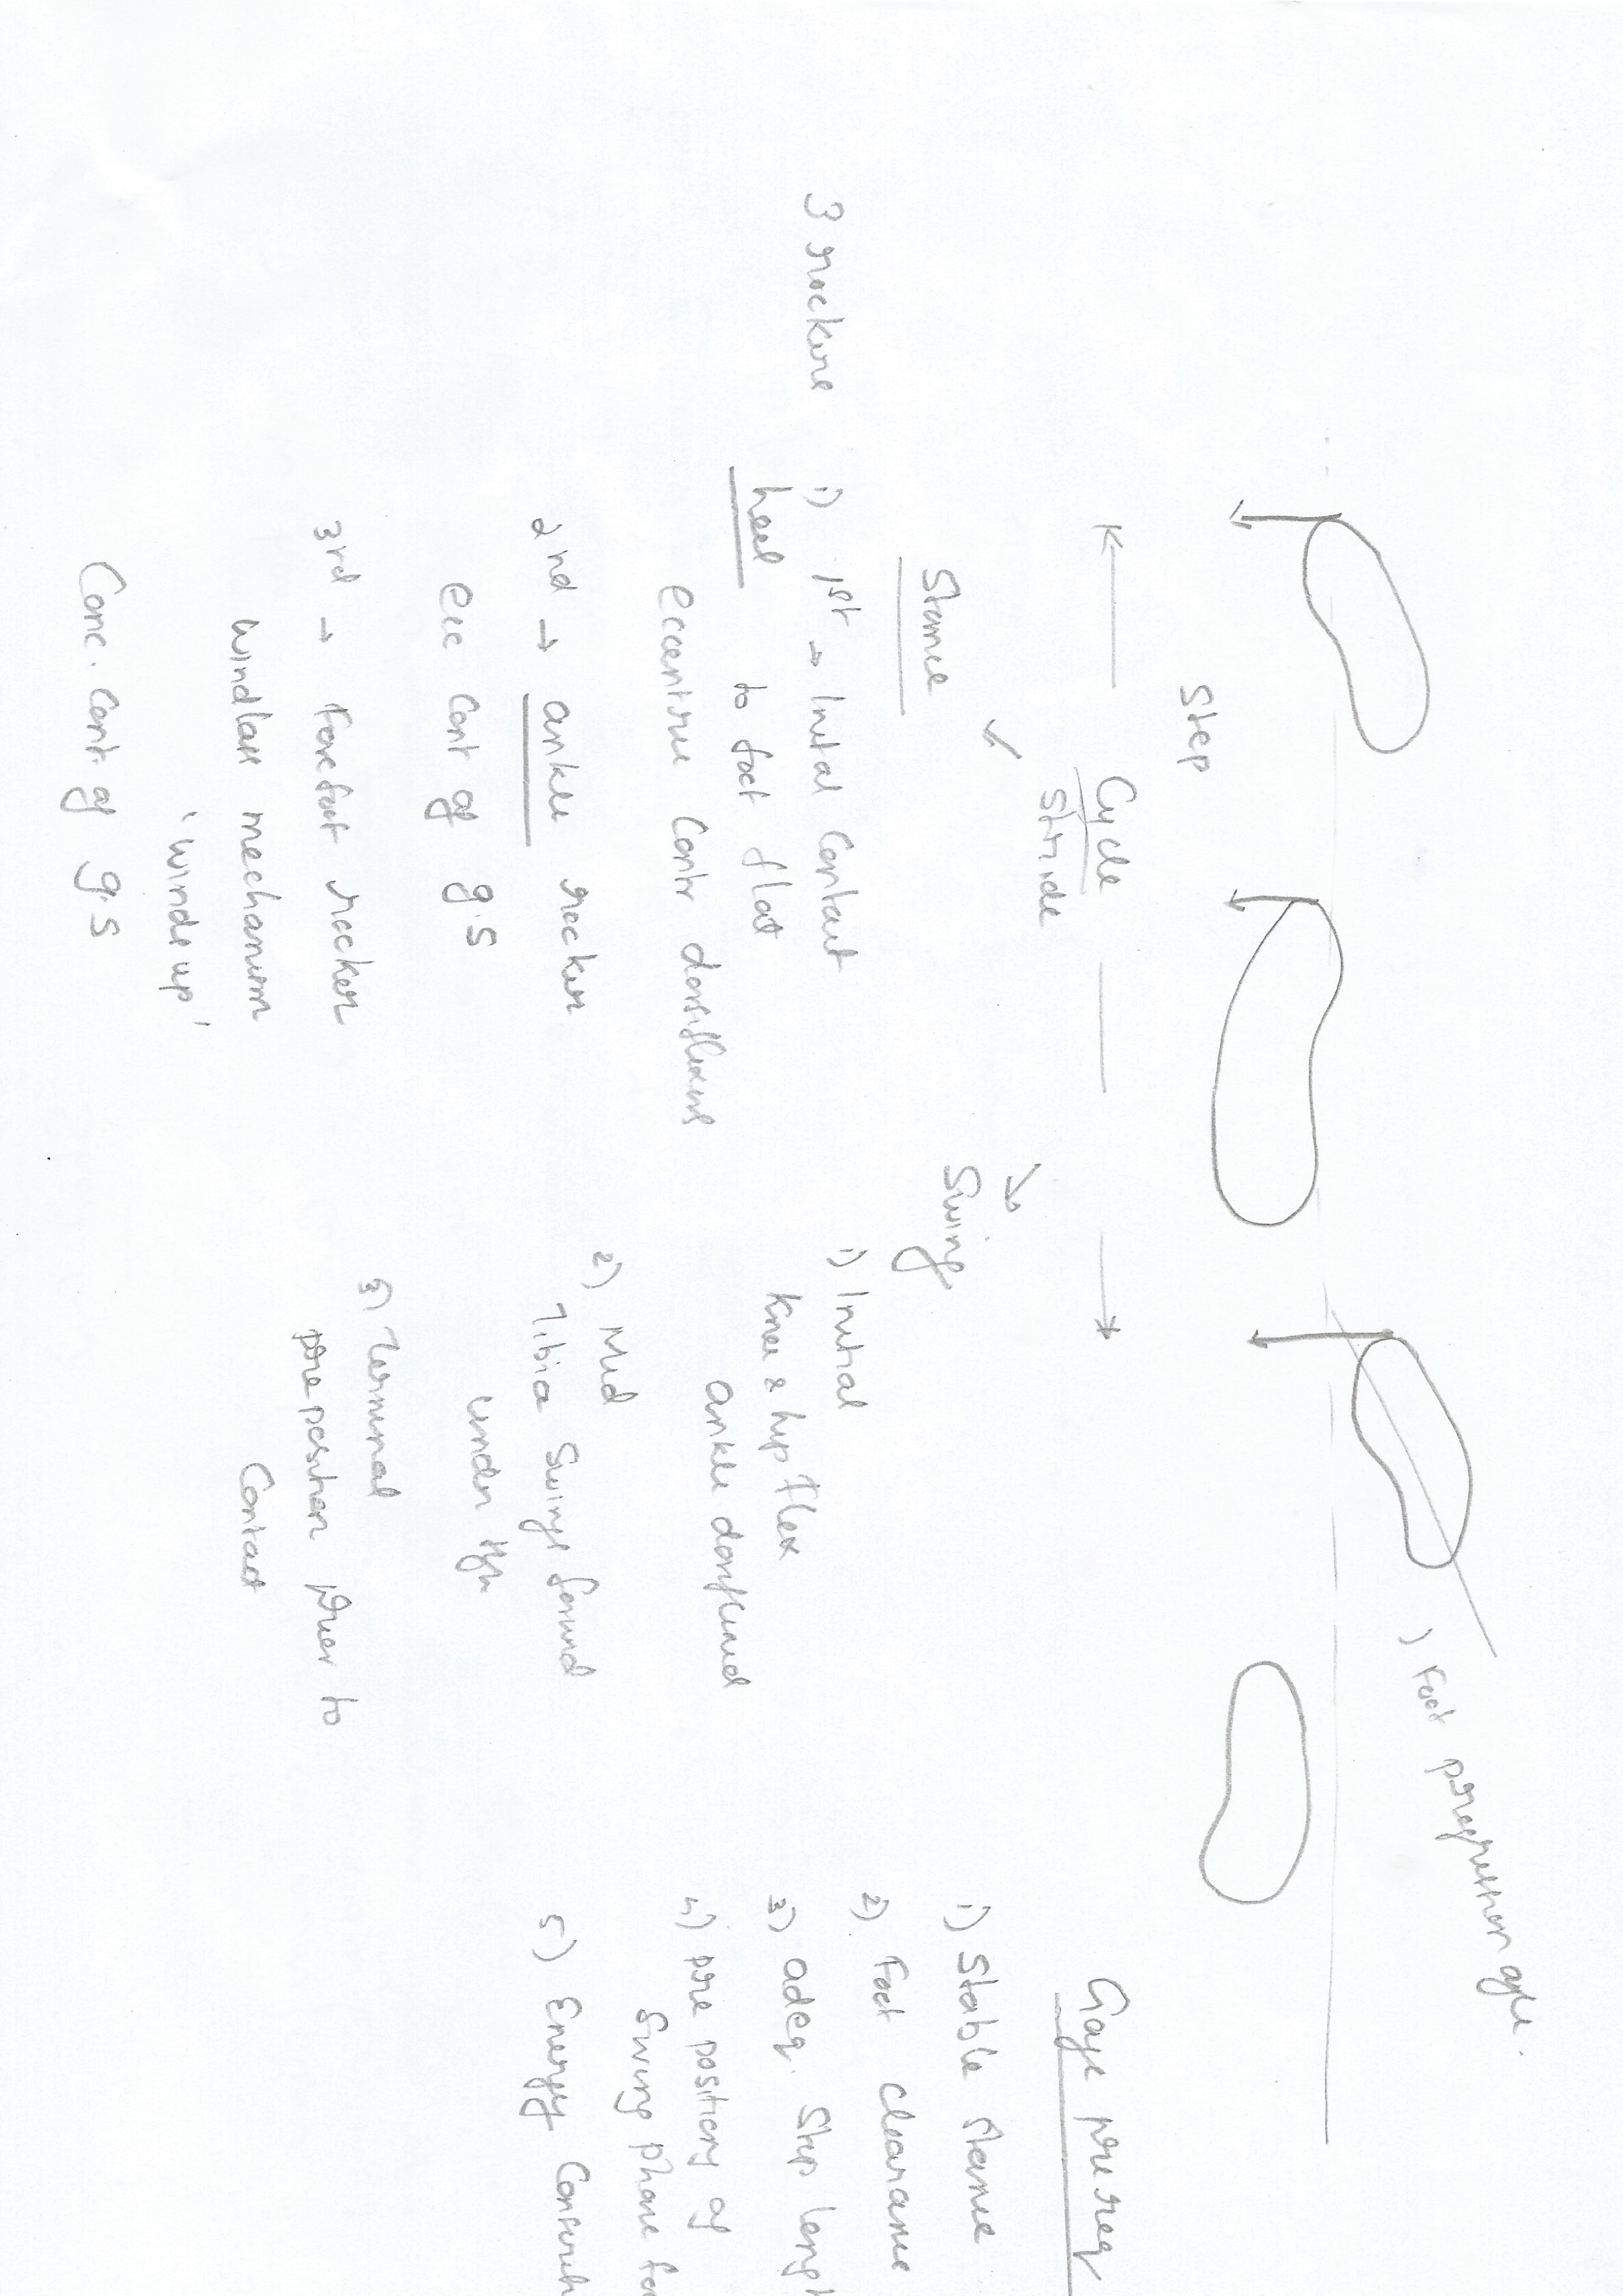 ) Foot progression angle.
Step
Cycle
Stride
Stance
Swing
3 rockers
1) 1st → Initial Contact
heel to foot flat
Eccentric Contr dorsiflexors
2nd → ankle rocker
Ecc Cont of g.s
3rd → Forefoot rocker
Windlass mechanism
'winds up'
Conc. Cont. of g.s
1) Initial
Knee & hip flex
ankle dorsiflexed
2) Mid
Tibia Swings forward
under
3) Terminal
pre position prior to
Contact
Gait pre req
1) Stable stance
2) Foot clearance
3) adeq. Step lengt
4) pre positiong of
Swing phase foo
5) Energy Conserv